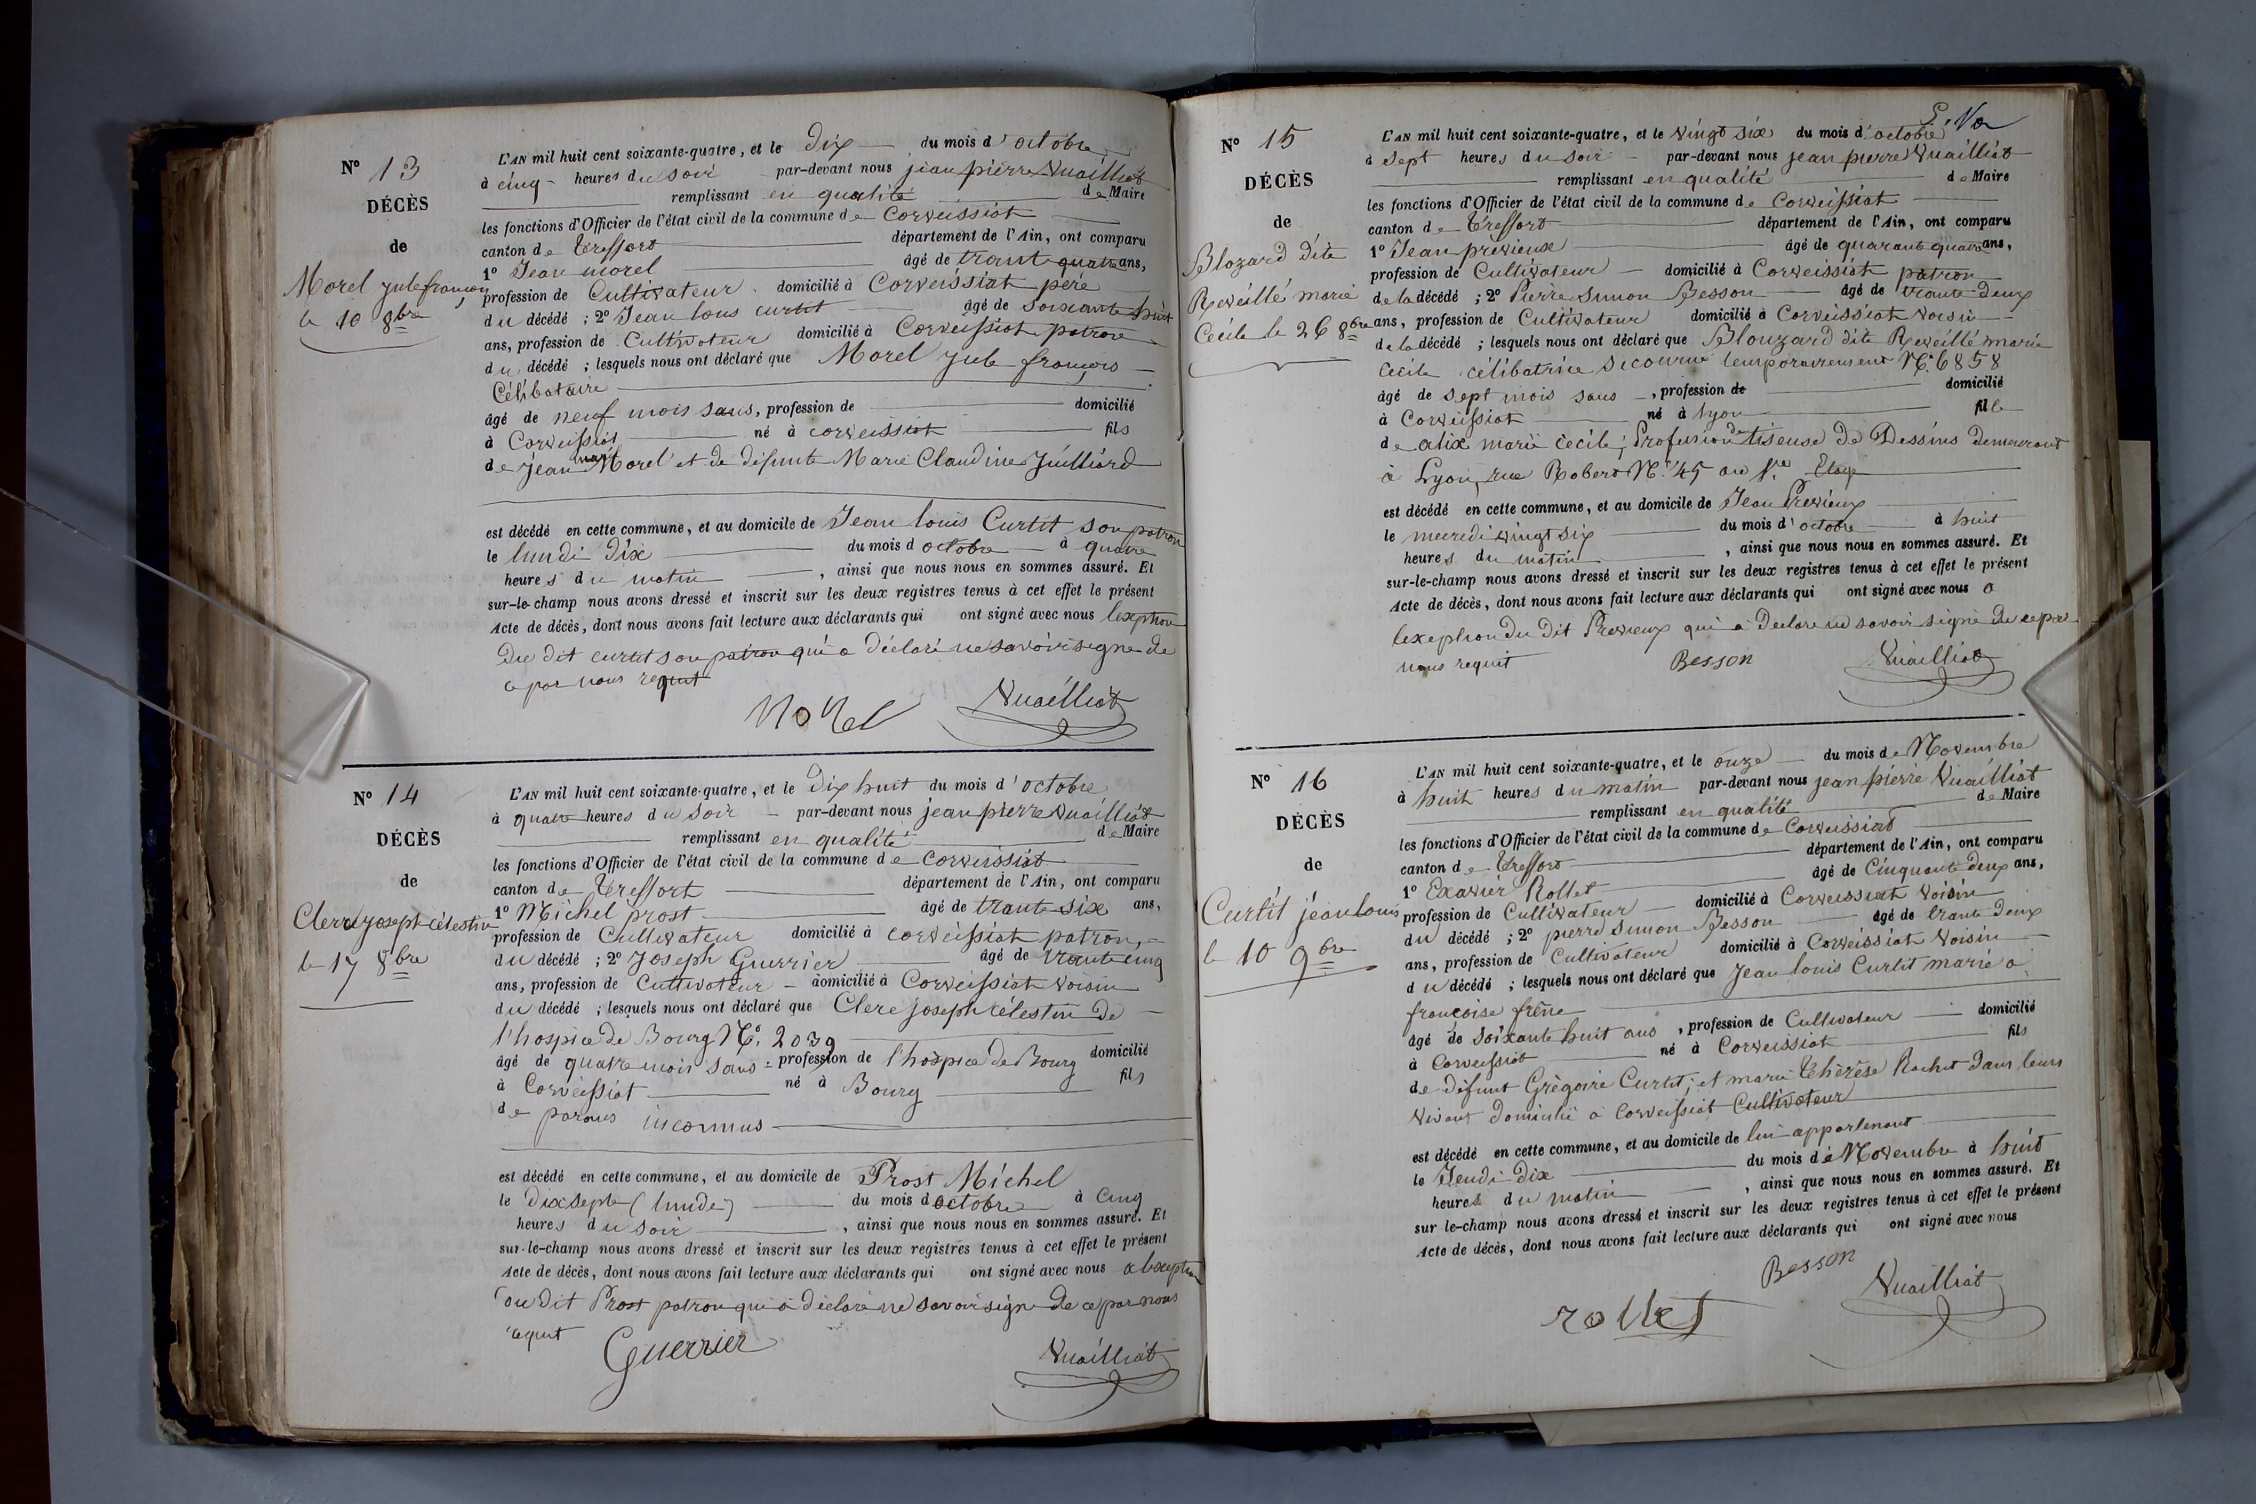 N° 13
DÉCÈS
de
Morel jule françois
le 10 8bre
L'AN mil huit cent soixante-quatre, et le Dix du mois d'octobre
à cinq heures du soir par-devant nous jean pierre Vuailliat
remplissant en qualité de Maire
les fonctions d'Officier de l'état civil de la commune de Corveissiat
canton de Treffort département de l'Ain, ont comparu
1° Jean morel âgé de trante quatre ans,
profession de Cultivateur domicilié à Corveissiat père
du décédé ; 2° Jean louis curtit âgé de soixante huit
ans, profession de Cultivateur domicilié à Corveissiat patron
du décédé ; lesquels nous ont déclaré que Morel jule françois
Célibataire
âgé de neuf mois sans, profession de domicilié
à Corveissiat né à corveissiat fils
de Jean Morel et de défunte Marie Claudine Juilliard
est décédé en cette commune, et au domicile de Jean louis Curtit son patron
le lundi Dix du mois d octobre à quatre
heures du matin , ainsi que nous nous en sommes assuré. Et
sur-le-champ nous avons dressé et inscrit sur les deux registres tenus à cet effet le présent
Acte de décès, dont nous avons fait lecture aux déclarants qui ont signé avec nous lexeption
Du dit curtit son patron qui a déclaré ne savoir signe de
ce par nous requit
Morel Vuailliat
N° 14
DÉCÈS
de
Clere joseph célestin
le 17 8bre
L'AN mil huit cent soixante-quatre, et le Dix huit du mois d'octobre
à quatre heures du soir par-devant nous jean pierre Vuailliat
remplissant en qualité de Maire
les fonctions d'Officier de l'état civil de la commune de corveissiat
canton de Treffort département de l'Ain, ont comparu
1° Michel prost âgé de trante six ans,
profession de Cultivateur domicilié à corveissiat patron,
du décédé ; 2° Joseph Guerrier âgé de trante cinq
ans, profession de Cultivateur domicilié à Corveissiat voisin
du décédé ; lesquels nous ont déclaré que Clere joseph célestin de
l'hospice de Bourg N°. 2039
âgé de quatre mois sans profession de l'hospice de Bourg domicilié
à Corveissiat né à Bourg fils
de parans inconnus
est décédé en cette commune, et au domicile de Prost Michel
le Dix sept (lundi) du mois d octobre à Cinq
heures du soir , ainsi que nous nous en sommes assuré. Et
sur-le-champ nous avons dressé et inscrit sur les deux registres tenus à cet effet le présent
Acte de décès, dont nous avons fait lecture aux déclarants qui ont signé avec nous a lexeption
du dit Prost patron qui a déclaré ne savoir signe de ce par nous
requit
Guerrier Vuailliat
N° 15
DÉCÈS
de
Blozard dite
Reveillé marie
Cecile le 26 8bre
L'AN mil huit cent soixante-quatre, et le vingt six du mois d'octobre
à sept heures du soir par-devant nous jean pierre Vuailliat
remplissant en qualité de Maire
les fonctions d'Officier de l'état civil de la commune de Corveissiat
canton de Treffort département de l'Ain, ont comparu
1° Jean previeux âgé de quarante quatre ans,
profession de Cultivateur domicilié à Corveissiat patron
de la décédé ; 2° Pierre simon Besson âgé de trante deux
ans, profession de Cultivateur domicilié à Corveissiat voisin
de la décédé ; lesquels nous ont déclaré que Blouzard dite Reveillé marie
Cecile célibatrice secourue temporairement N°. 6858
âgé de sept mois sans, profession de domicilié
à Corveissiat né à lyon fille
de alix marie cecile, Profession de tiseuse de Dessins demeurant
à Lyon, rue Robert N° 45 au St. Eloye
est décédé en cette commune, et au domicile de Jean Previeux
le mecredi vingt six du mois d'octobre à huit
heures du matin , ainsi que nous nous en sommes assuré. Et
sur-le-champ nous avons dressé et inscrit sur les deux registres tenus à cet effet le présent
Acte de décès, dont nous avons fait lecture aux déclarants qui ont signé avec nous a
lexeption du Dit Previeux qui a Declare ne savoir signé de ce par
nous requit Besson Vuailliat
N° 16
DÉCÈS
de
Curtit jean louis
le 10 9bre
L'AN mil huit cent soixante-quatre, et le onze du mois de Novembre
à huit heures du matin par-devant nous jean pierre Vuailliat
remplissant en qualité de Maire
les fonctions d'Officier de l'état civil de la commune de Corveissiat
canton de Treffort département de l'Ain, ont comparu
1° Exavier Rollet âgé de Cinquante deux ans,
profession de Cultivateur domicilié à Corveissiat voisin
du décédé ; 2° pierre simon Besson âgé de trante deux
ans, profession de Cultivateur domicilié à Corveissiat voisin
du décédé ; lesquels nous ont déclaré que Jean louis Curtit marie a
françoise frêne
âgé de soixante huit ans, profession de Cultivateur domicilié
à Corveissiat né à Corveissiat fils
de défunt Grégoire Curtit, et marie Thérèse Rochet dans leurs
vivant domicilié à Corveissiat Cultivateur
est décédé en cette commune, et au domicile de lui appartenant
le Jeudi Dix du mois de Novembre à huit
heures du matin , ainsi que nous nous en sommes assuré. Et
sur le-champ nous avons dressé et inscrit sur les deux registres tenus à cet effet le présent
Acte de décès, dont nous avons fait lecture aux déclarants qui ont signé avec nous
Besson Vuailliat
rollet